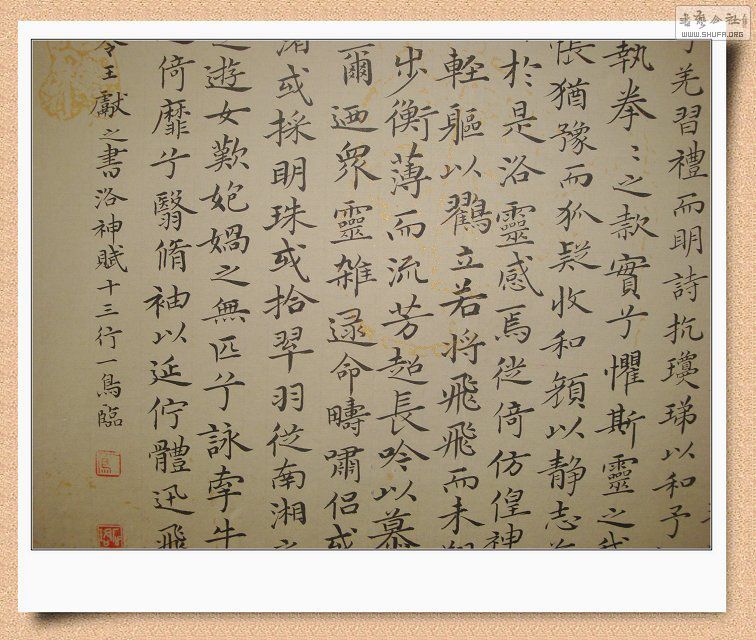 羌習禮而明詩抗瓊珶以和予
執拳〻之款實兮懼斯靈之我
悵猶豫而狐疑收和顏以静志
於是洛靈感焉徙倚仿偟神
輕軀以鶴立若将飛飛而未翔
步衡薄而流芳超長吟以慕
爾迺衆靈雜遝命疇嘯侣或
渚或採明珠或拾翠羽從南湘之
遊女歎匏媧之無匹兮詠牽牛
之倚靡兮翳脩袖以延佇體迅飛
令王獻之書洛神賦十三行一鳥臨
書藝公社
WWW.SHUFA.ORG